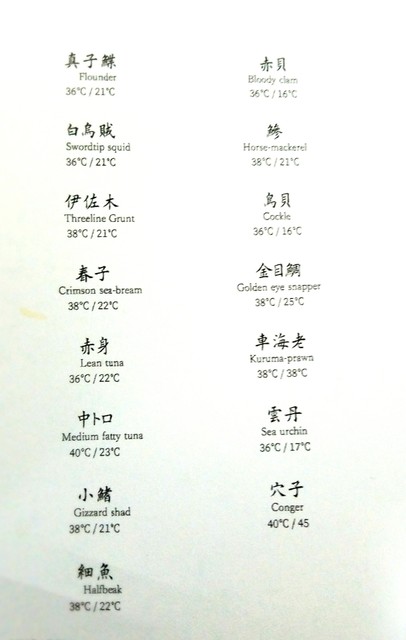 真子鰈
Flounder
36℃ / 21℃
白烏賊
Swordtip squid
36℃ / 21℃
伊佐木
Threeline Grunt
38℃ / 21℃
春子
Crimson sea-bream
38℃ / 22℃
赤身
Lean tuna
36℃ / 22℃
中トロ
Medium fatty tuna
40℃ / 23℃
小鰭
Gizzard shad
38℃ / 21℃
細魚
Halfbeak
38℃ / 22℃
赤貝
Bloody clam
36℃ / 16℃
鯵
Horse-mackerel
38℃ / 21℃
鳥貝
Cockle
36℃ / 16℃
金目鯛
Golden eye snapper
38℃ / 25℃
車海老
Kuruma-prawn
38℃ / 38℃
雲丹
Sea urchin
36℃ / 17℃
穴子
Conger
40℃ / 45